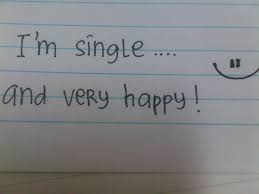 I'm single ....
and very happy!